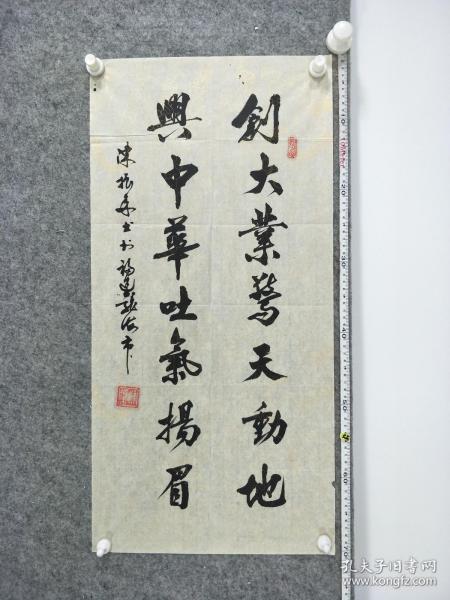 創大業驚天動地
興中華吐氣揚眉
陳振希书於福建龍海市
孔夫子旧书网
www.kongfz.com